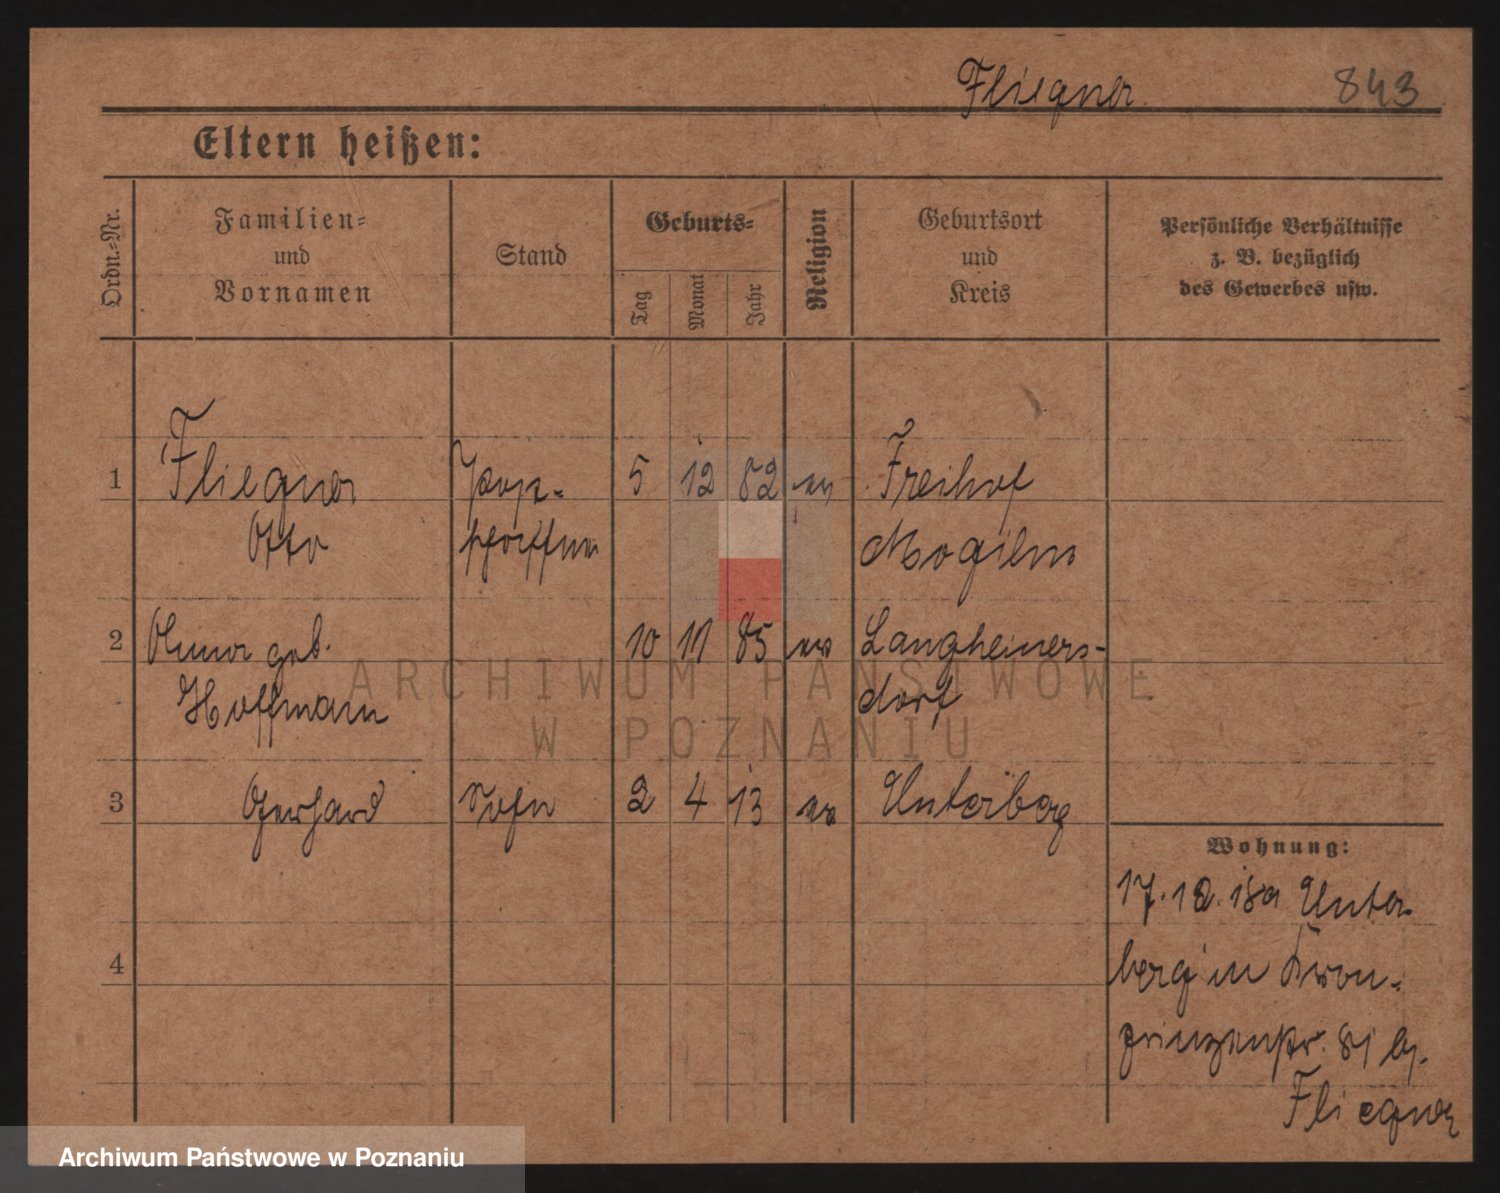 Fliegner 843
Eltern heißen:
Ordn.-Nr.
Familien-
und
Vornamen
Stand
Geburts-
Tag
Monat
Jahr
Religion
Geburtsort
und
Kreis
Persönliche Verhältnisse
z. B. bezüglich
des Gewerbes usw.
1 Fliegner 5 12 82 ev Freihof
Otto schaffner Mogilno
2 Anna geb. 10 11 85 ev Langheiners-
Hoffmann dorf
3 Gerhard Sohn 2 4 13 ev Unterberg
Wohnung:
17.12. Unter
berg in Kron-
prinzenstr. 81 b.
Fliegner
4
ARCHIWUM PAŃSTWOWE
W POZNANIU
Archiwum Państwowe w Poznaniu